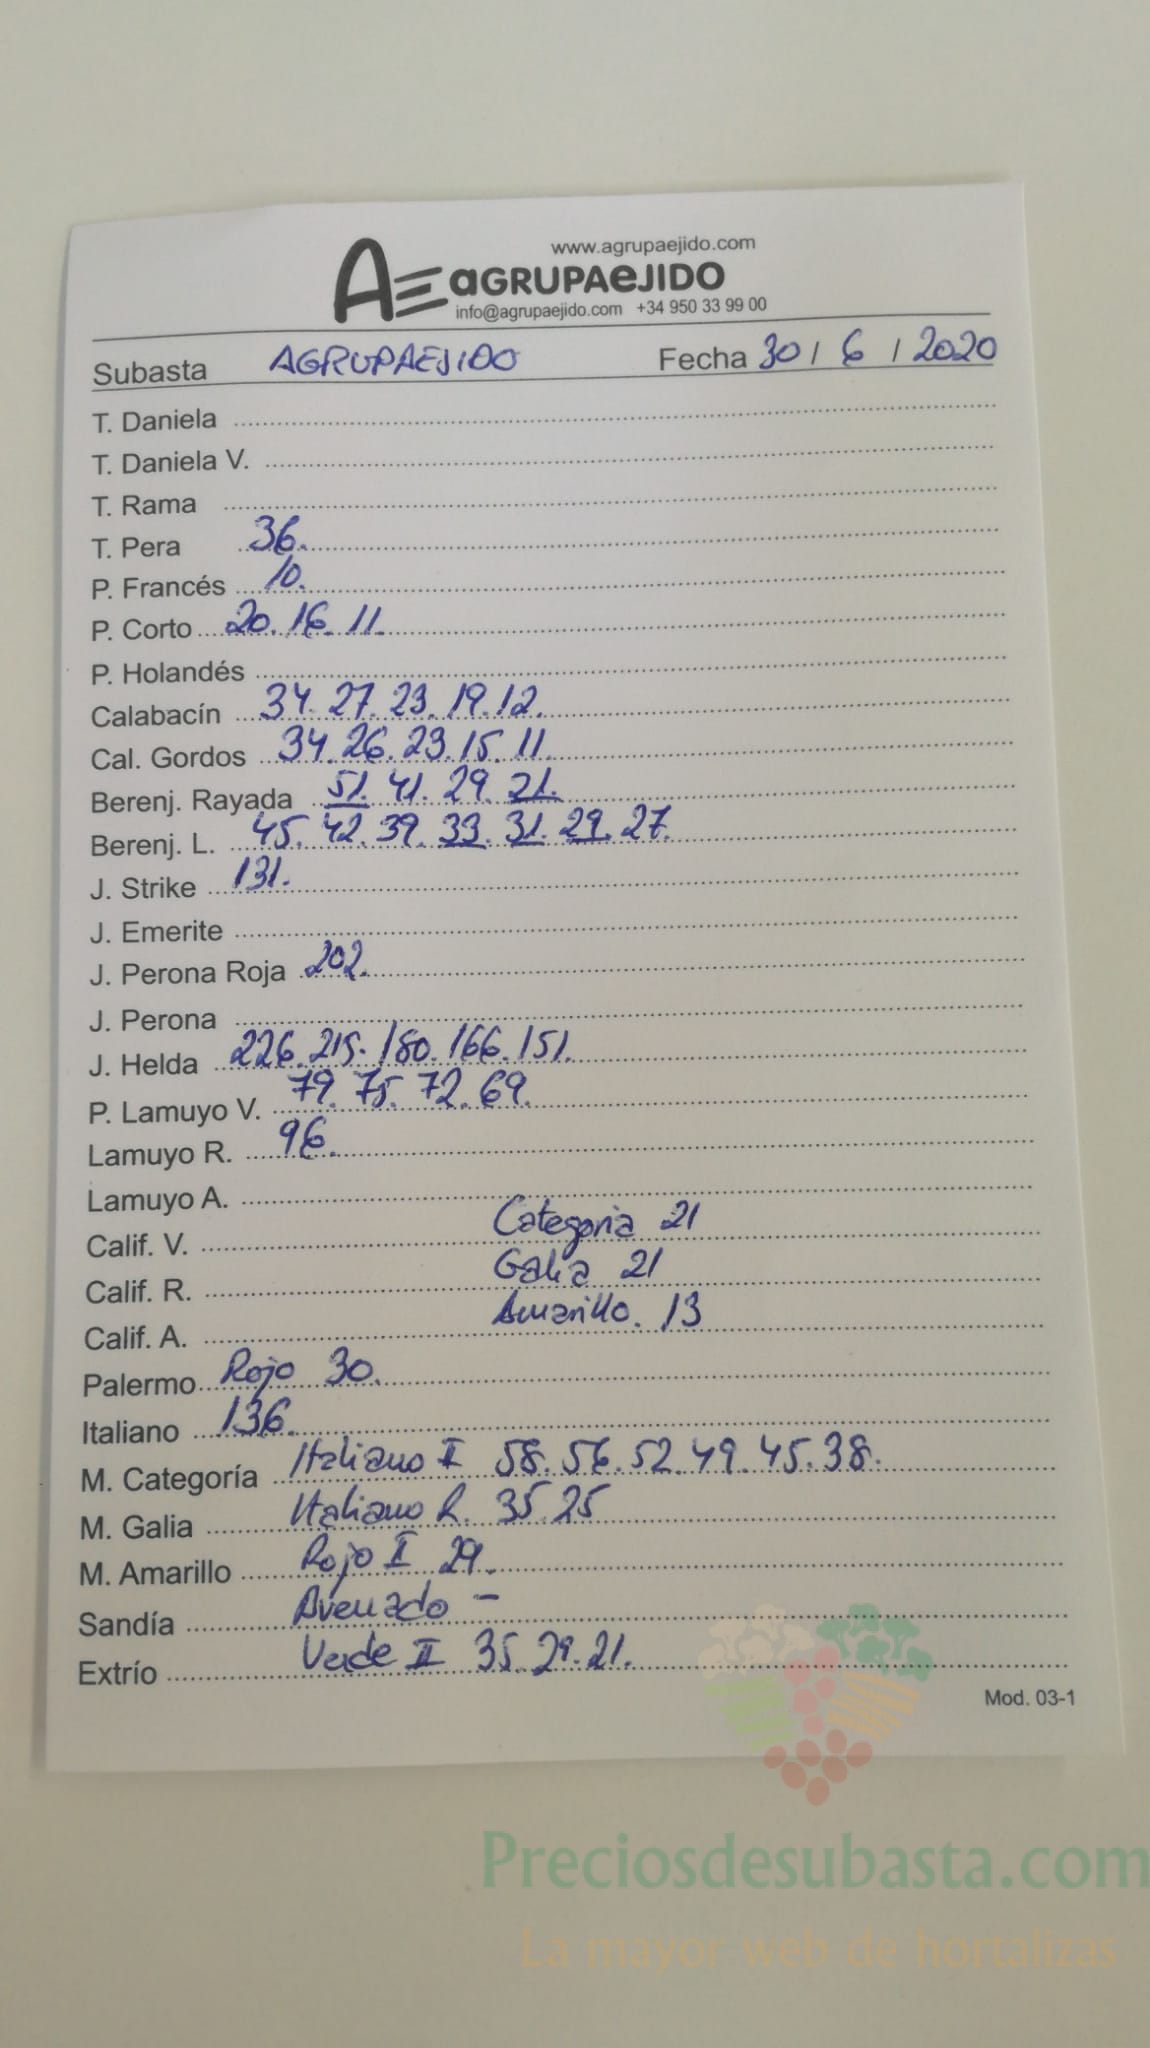 www.agrupaejido.com
AE aGRUPAeJIDO
info@agrupaejido.com +34 950 33 99 00
Subasta AGRUPAEJIDO Fecha 30 / 6 / 2020
T. Daniela
T. Daniela V.
T. Rama
T. Pera 36.
P. Francés 10.
P. Corto 20. 16. 11.
P. Holandés
Calabacín 34. 27. 23. 19. 12.
Cal. Gordos 34. 26. 23. 15. 11.
Berenj. Rayada 51. 41. 29. 21.
Berenj. L. 45. 42. 39. 33. 31. 29. 27.
J. Strike 131.
J. Emerite
J. Perona Roja 202.
J. Perona
J. Helda 226. 215. 180. 166. 151.
P. Lamuyo V. 79. 75. 72. 69.
Lamuyo R. 96.
Lamuyo A.
Calif. V. Categoria 21
Calif. R. Galia 21
Calif. A. Amarillo. 13
Palermo Rojo 30.
Italiano 136.
M. Categoría Italiano II 58. 56. 52. 49. 45. 38.
M. Galia Italiano R. 35. 25
M. Amarillo Rojo II 29.
Sandía Avenado -
Extrío Verde II 35. 29. 21.
Mod. 03-1
Preciosdesubasta.com
La mayor web de hortalizas